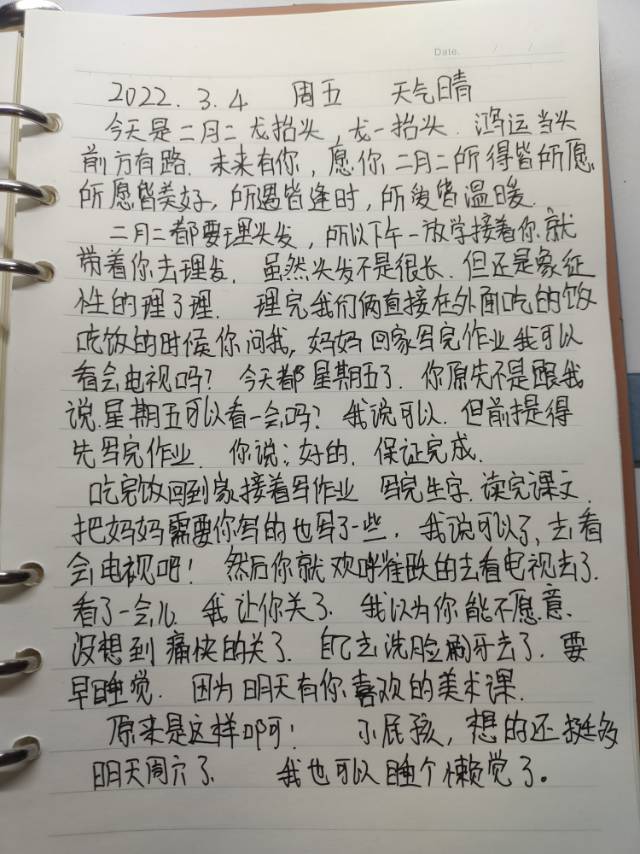 Date. / /
2022.3.4 周五 天气晴
今天是二月二龙抬头，龙一抬头．鸿运当头
前方有路．未来有你，愿你二月二所得皆所愿
所愿皆美好，所遇皆逢时，所爱皆温暖．
二月二都要理头发，所以下午一放学接着你就
带着你去理发．虽然头发不是很长．但还是象征
性的理了理． 理完我们俩直接在外面吃的饭
吃饭的时候你问我，妈妈回家写完作业我可以
看会电视吗？今天都星期五了．你原先不是跟我
说星期五可以看一会吗？我说可以．但前提是得
先写完作业．你说：好的．保证完成．
吃完饭回到家接着写作业 写完生字．读完课文．
把妈妈需要你写的也写了一些．我说可以了，去看
会电视吧！然后你就欢呼雀跃的去看电视去了．
看了一会儿．我让你关了．我以为你能不愿意．
没想到痛快的关了．自己去洗脸刷牙去了．要
早睡觉．因为明天有你喜欢的美术课．
原来是这样啊！小屁孩，想的还挺多
明天周六了 我也可以睡个懒觉了。